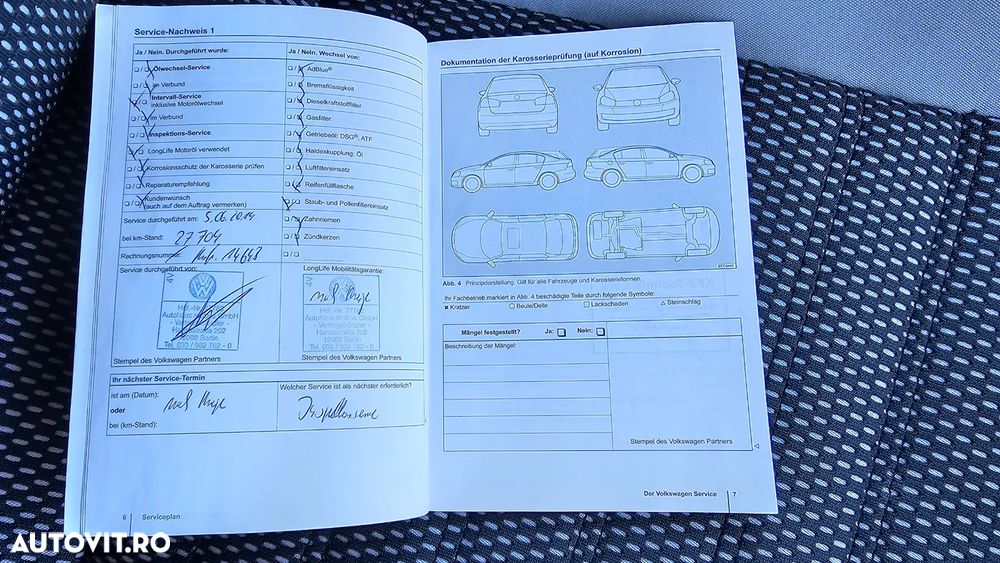 Service-Nachweis 1
Ja / Nein. Durchgeführt wurde:
Ja / Nein. Wechsel von:
Ölwechsel-Service
AdBlue®
im Verbund
Bremsflüssigkeit
Intervall-Service
inklusive Motorölwechsel
Dieselkraftstofffilter
im Verbund
Gasfilter
Inspektions-Service
Getriebeöl: DSG®, ATF
LongLife Motoröl verwendet
Haldexkupplung: Öl
Korrosionsschutz der Karosserie prüfen
Luftfiltereinsatz
Reparaturempfehlung
Reifenfüllflasche
Kundenwunsch
(auch auf dem Auftrag vermerken)
Staub- und Pollenfiltereinsatz
Service durchgeführt am: 5.06.2014
Zahnriemen
bei km-Stand: 27 704
Zündkerzen
Rechnungsnummer: 14643
Service durchgeführt von:
LongLife Mobilitätsgarantie:
Autohaus
- Vertragshändler -
Hansastraße 202
Berlin
Tel. 030 / 962 762 - 0
Stempel des Volkswagen Partners
Autohaus GmbH
- Vertragshändler -
Hansastraße 202
Berlin
Tel. 030 / 962 762 - 0
Stempel des Volkswagen Partners
Ihr nächster Service-Termin
ist am (Datum):
oder
bei (km-Stand):
Welcher Service ist als nächster erforderlich?
6 Serviceplan
Dokumentation der Karosserieprüfung (auf Korrosion)
Abb. 4 Prinzipdarstellung: Gilt für alle Fahrzeuge und Karosserieformen.
Ihr Fachbetrieb markiert in Abb. 4 beschädigte Teile durch folgende Symbole:
Kratzer
Beule/Delle
Lackschaden
Steinschlag
Mängel festgestellt? Ja: Nein:
Beschreibung der Mängel:
Stempel des Volkswagen Partners
Der Volkswagen Service 7
AUTOVIT.RO